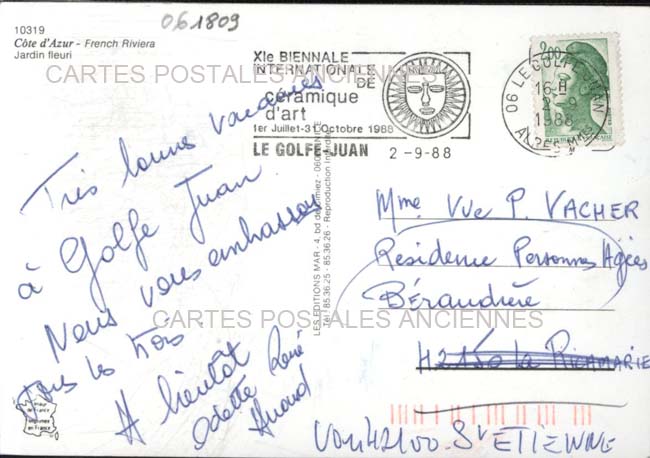 061809
10319
Côte d'Azur - French Riviera
Jardin fleuri
CARTES POSTALES ANCIENNES
XIe BIENNALE
INTERNATIONALE
DE
céramique
d'art
1er Juillet-31 Octobre 1988
LE GOLFE-JUAN
2-9-88
2,00
06 LE GOLFE-JUAN
16 H
2-9
1988
ALPES-MMES
Très bonnes vacances
à Golfe Juan
Nous vous embrassons
tous les trois.
A bientôt
Odette René
LES EDITIONS MAR - 4, bd de
Tél 8536.25 - 8536.26 - Reproduction Interdite
Mme Vve P. VACHER
Résidence Personnes Agées
Bérandière
42150 la RICAMARIE
42100 St ETIENNE
CARTES POSTALES ANCIENNES